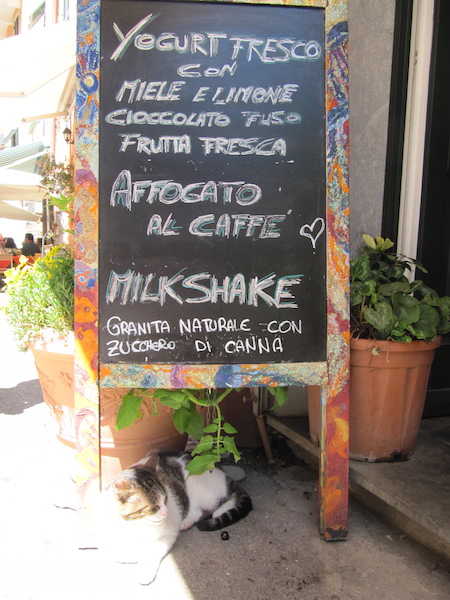 YOGURT FRESCO
CON
MIELE E LIMONE
CIOCCOLATO FUSO
FRUTTA FRESCA
AFFOGATO
AL CAFFE'
MILKSHAKE
GRANITA NATURALE CON
ZUCCHERO DI CANNA